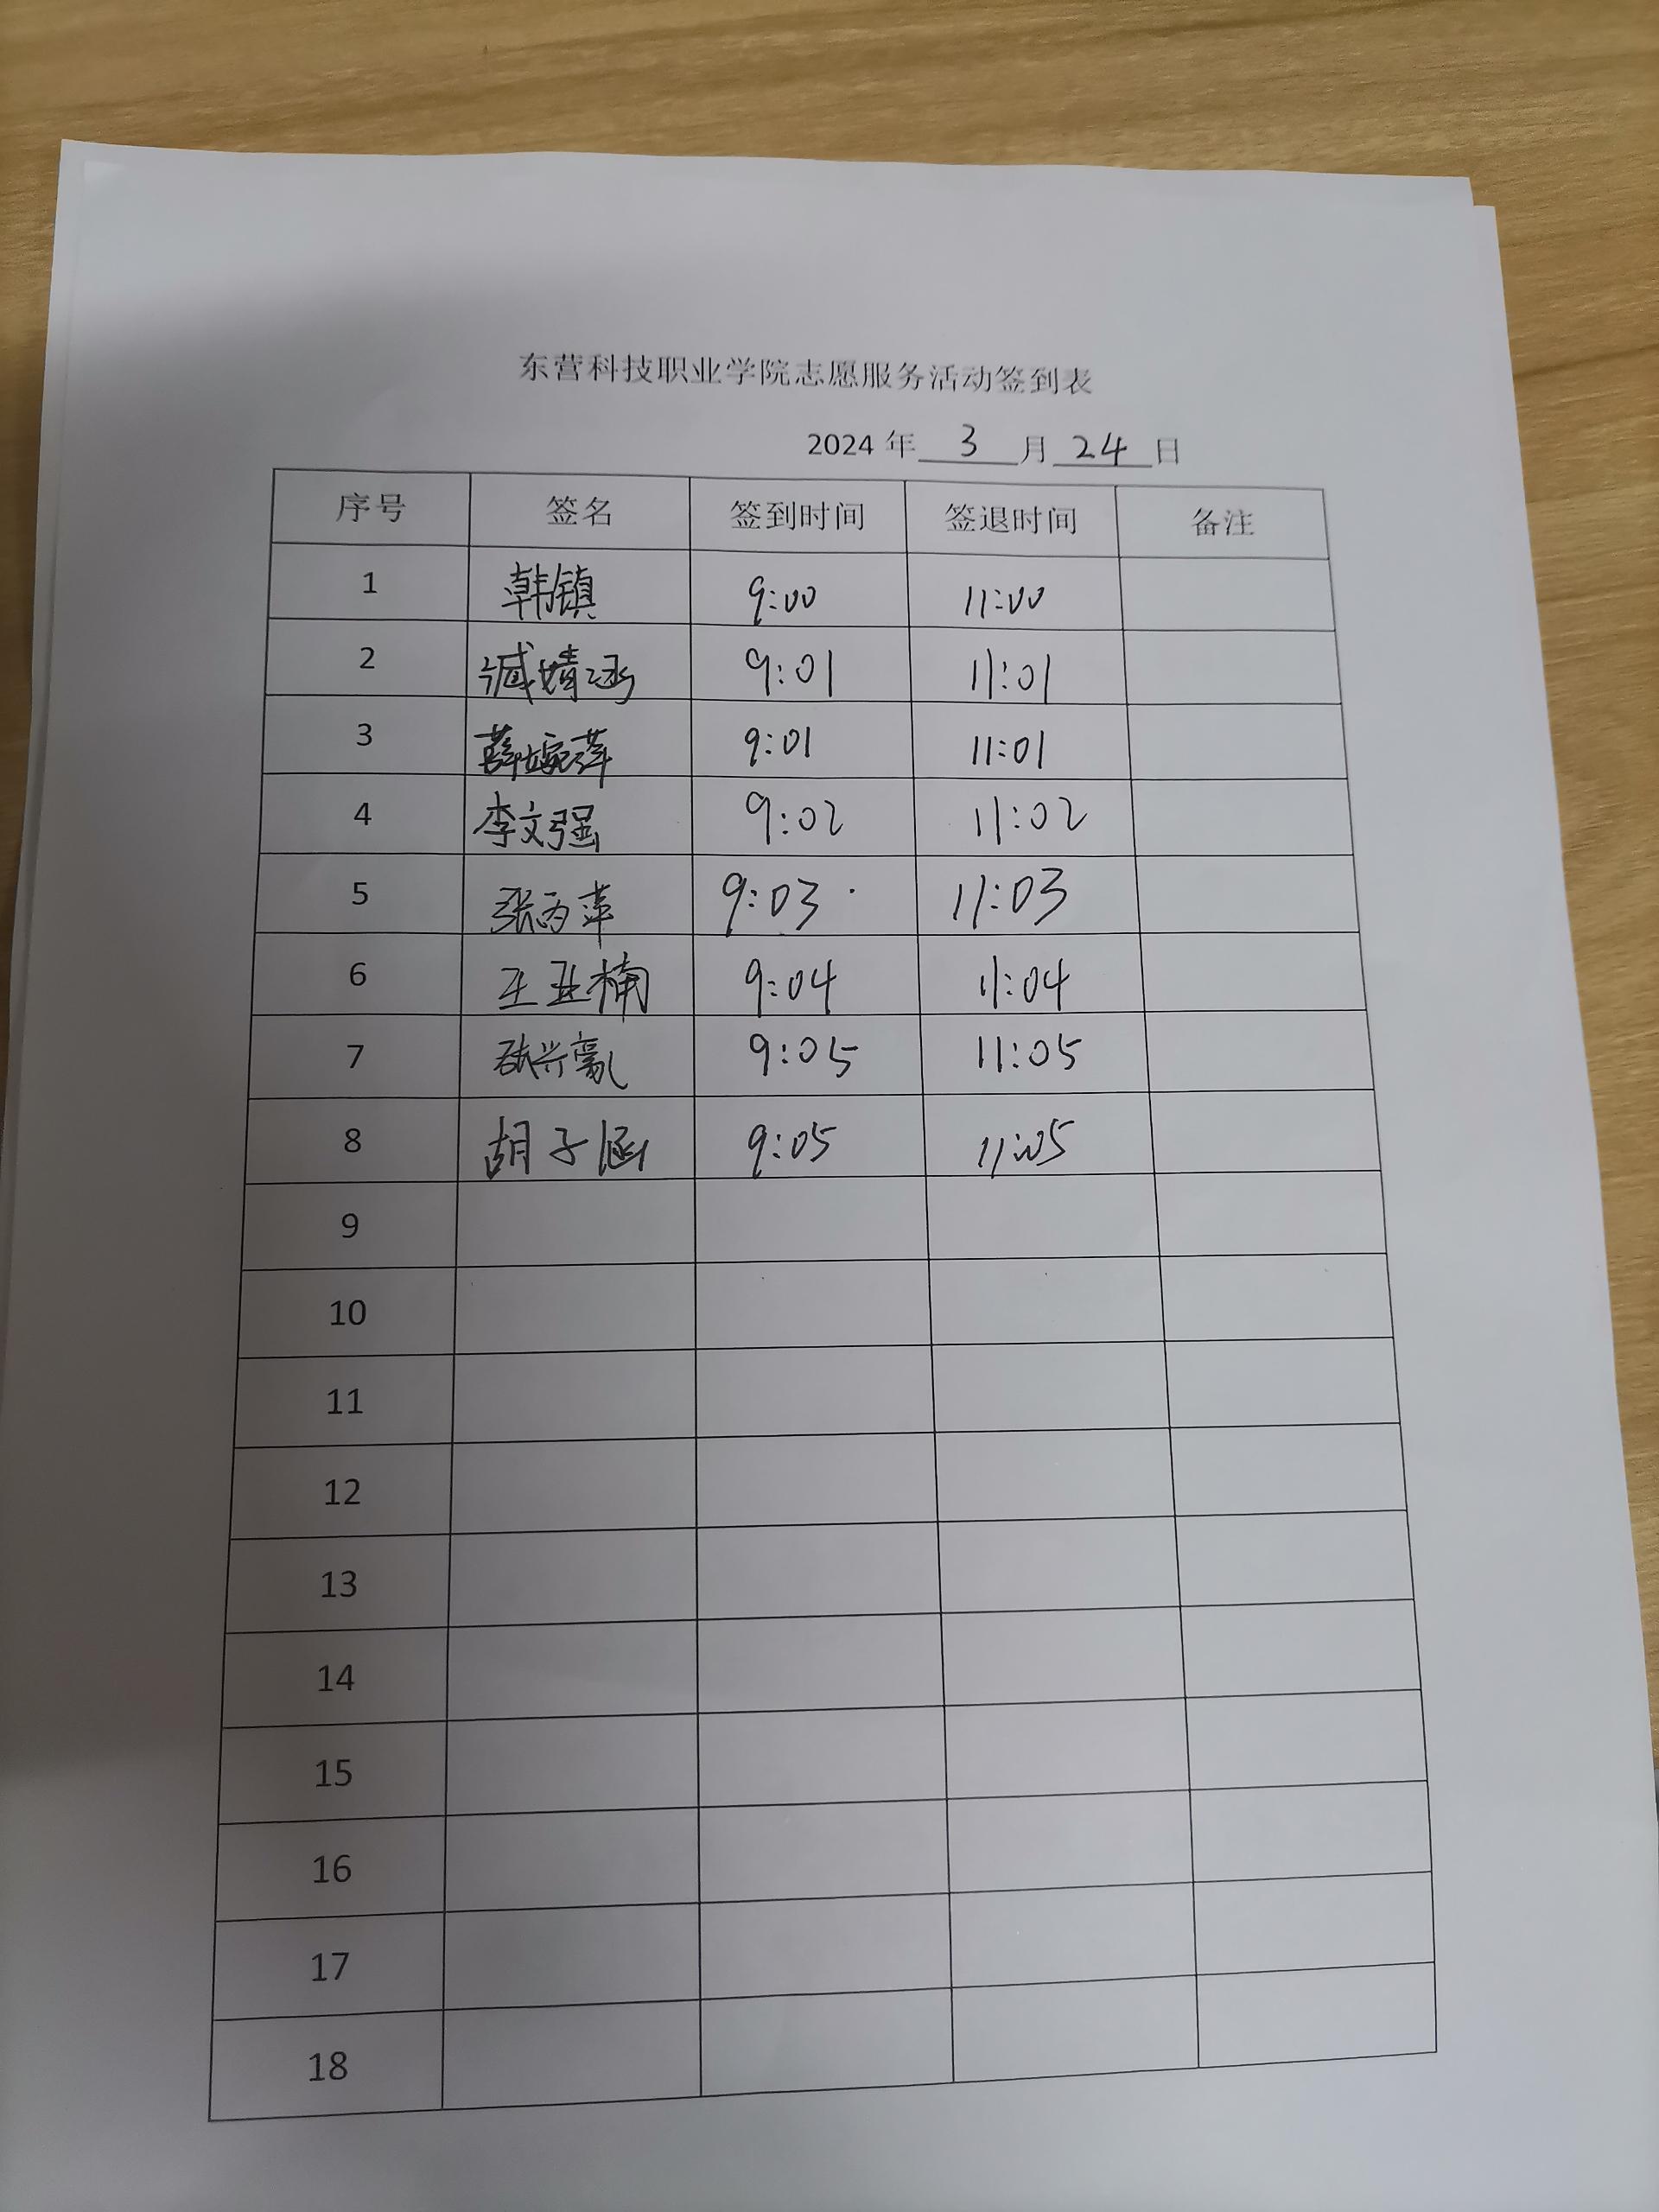 东营科技职业学院志愿服务活动签到表
2024 年 3 月 24 日
序号 签名 签到时间 签退时间 备注
1 韩镇 9:00 11:00
2 臧婧涵 9:01 11:01
3 薛婉萍 9:01 11:01
4 李文强 9:02 11:02
5 9:03 11:03
6 王亚楠 9:04 11:04
7 9:05 11:05
8 胡子涵 9:05 11:05
9
10
11
12
13
14
15
16
17
18